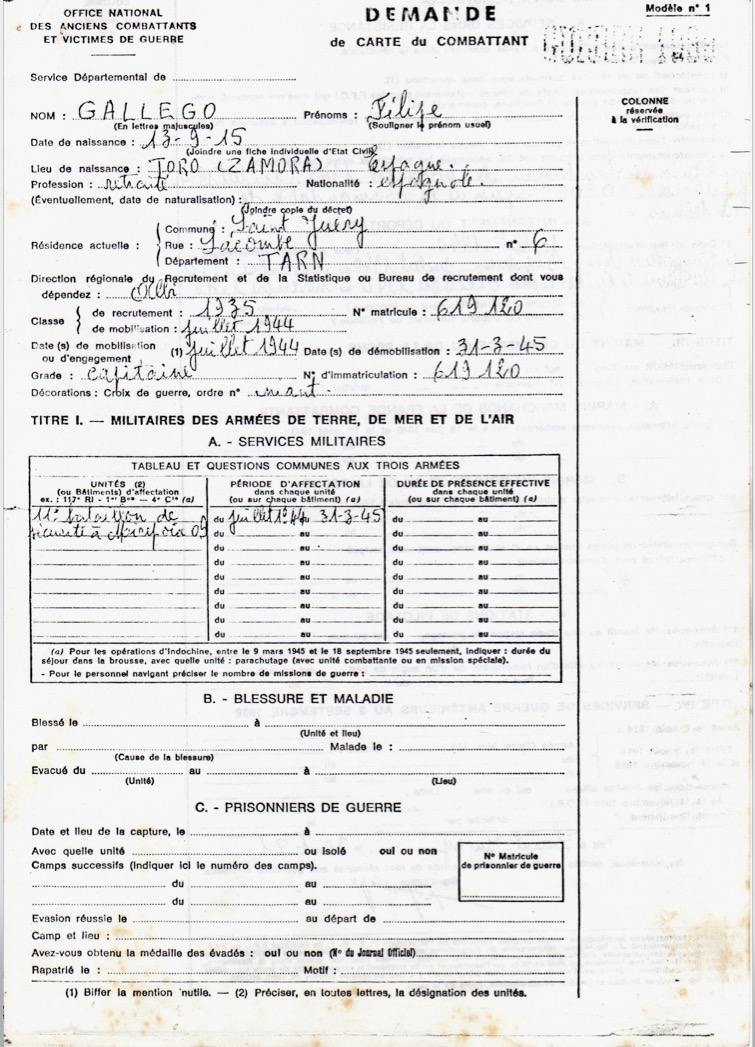 OFFICE NATIONAL
DES ANCIENS COMBATTANTS
ET VICTIMES DE GUERRE
DEMANDE
de CARTE du COMBATTANT
Modèle n° 1
Service Départemental de
NOM : GALLEGO Prénoms : Félipe
(En lettres majuscules) (Souligner le prénom usuel)
COLONNE
réservée
à la vérification
Date de naissance : 13-9-15
(Joindre une fiche individuelle d'Etat Civil)
Lieu de naissance : TORO (ZAMORA) Espagne.
Profession : retraité Nationalité : espagnole.
(Éventuellement, date de naturalisation) :
(Joindre copie du décret)
Résidence actuelle :
Commune : Saint Juéry
Rue : Lacombe n° 6
Département : TARN
Direction régionale du Recrutement et de la Statistique ou Bureau de recrutement dont vous
dépendez : Albi
Classe
de recrutement : 1935 N° matricule : 619 120
de mobilisation : juillet 1944
Date(s) de mobilisation
ou d'engagement (1) juillet 1944 Date(s) de démobilisation : 31-3-45
Grade : capitaine N° d'immatriculation : 619 120
Décorations : Croix de guerre, ordre n° néant.
TITRE I. — MILITAIRES DES ARMÉES DE TERRE, DE MER ET DE L'AIR
A. - SERVICES MILITAIRES
TABLEAU ET QUESTIONS COMMUNES AUX TROIS ARMÉES
UNITÉS (2)
(ou Bâtiments) d'affectation
ex. : 117e RI - 1er Bon — 4e Cie (a)
PÉRIODE D'AFFECTATION
dans chaque unité
(ou sur chaque bâtiment) (a)
DURÉE DE PRÉSENCE EFFECTIVE
dans chaque unité
(ou sur chaque bâtiment) (a)
11e bataillon de du juillet 44 31-3-45 du au
sécurité à 09 du au du au
du au du au
du au du au
du au du au
du au du au
du au du au
du au du au
du au du au
(a) Pour les opérations d'Indochine, entre le 9 mars 1945 et le 18 septembre 1945 seulement, indiquer : durée du
séjour dans la brousse, avec quelle unité : parachutage (avec unité combattante ou en mission spéciale).
- Pour le personnel navigant préciser le nombre de missions de guerre :
B. - BLESSURE ET MALADIE
Blessé le à
(Unité et lieu)
par Malade le :
(Cause de la blessure)
Evacué du au à
(Unité) (Lieu)
C. - PRISONNIERS DE GUERRE
Date et lieu de la capture, le à
Avec quelle unité ou isolé oui ou non
Camps successifs (indiquer ici le numéro des camps).
du au
du au
N° Matricule
de prisonnier de guerre
Evasion réussie le au départ de
Camp et lieu :
Avez-vous obtenu la médaille des évadés : oui ou non (N° du Journal Officiel)
Rapatrié le : Motif :
(1) Biffer la mention nutile. — (2) Préciser, en toutes lettres, la désignation des unités.